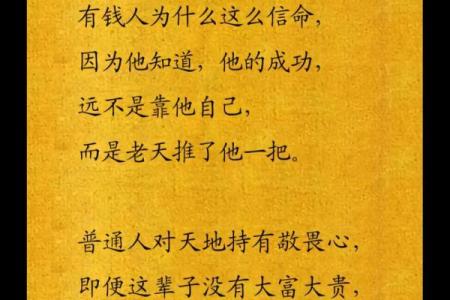 有钱人为什么这么信命，
因为他知道，他的成功，
远不是靠他自己，
而是老天推了他一把。
普通人对天地持有敬畏心，
即便这辈子没有大富大贵，